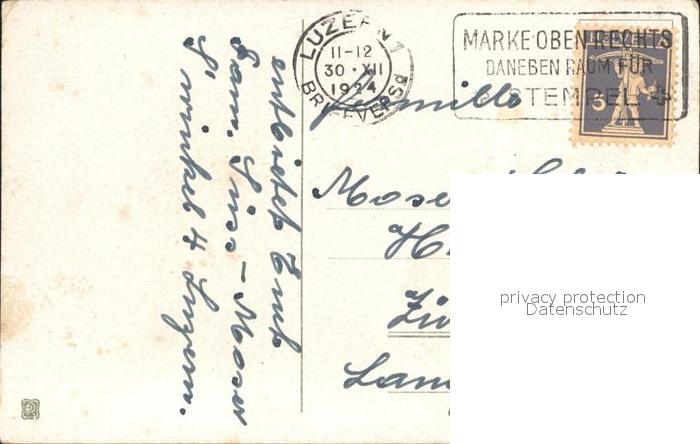 LUZERN 1
11-12
30·XII
1924
BRIEFVERSD
MARKE OBEN RECHTS
DANEBEN RAUM FÜR
STEMPEL
HELVETIA
5
Familie
Moser
Zü
entbietet Euch
Fam. Suss-Moser
4 Luzern.
privacy protection
Datenschutz